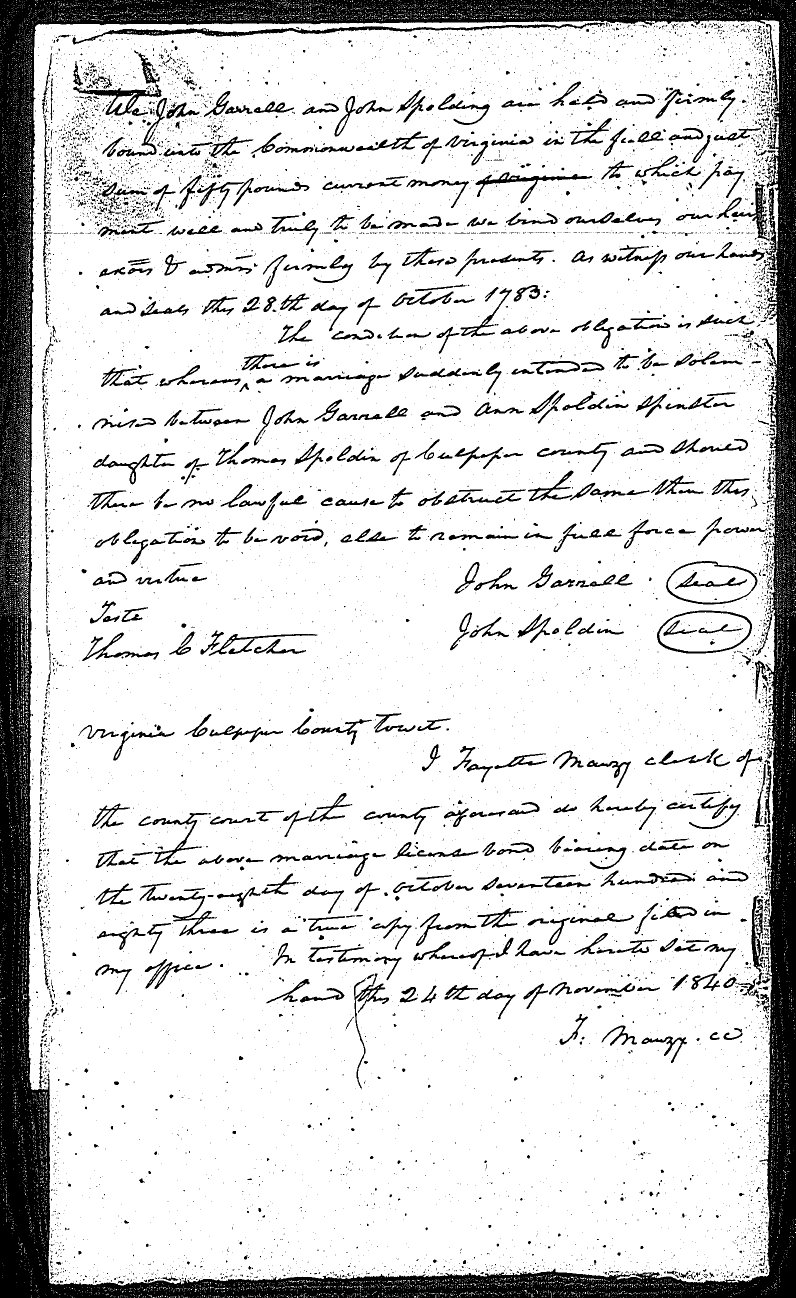 We John Garrell and John Spolding are held and firmly
bound unto the Commonwealth of Virginia in the full and just
sum of fifty pounds current money of Virginia to which pay
ment well and truly to be made we bind ourselves our heirs
exōrs & admrs firmly by these presents. As witness our hands
and seals this 28.th day of October 1783:
The condition of the above obligation is such
there is
that whereas, a marriage suddenly intended to be solem-
nised between John Garrell and Ann Spoldin Spinster
daughter of Thomas Spoldin of Culpeper county and should
there be no lawful cause to obstruct the same then this
obligation to be void, else to remain in full force power
and virtue
John Garrell. Seal
Teste
John Spoldin Seal
Thomas C Fletcher
Virginia Culpeper County towit.
I Fayette Mauzy clerk of
the county court of the county aforesaid do hereby certify
that the above marriage license bond bearing date on
the twenty-eighth day of October seventeen hundred and
eighty three is a true copy from the original filed in
my office. In testimony whereof I have hereto set my
hand this 24th day of November 1840
F: Mauzy. cc